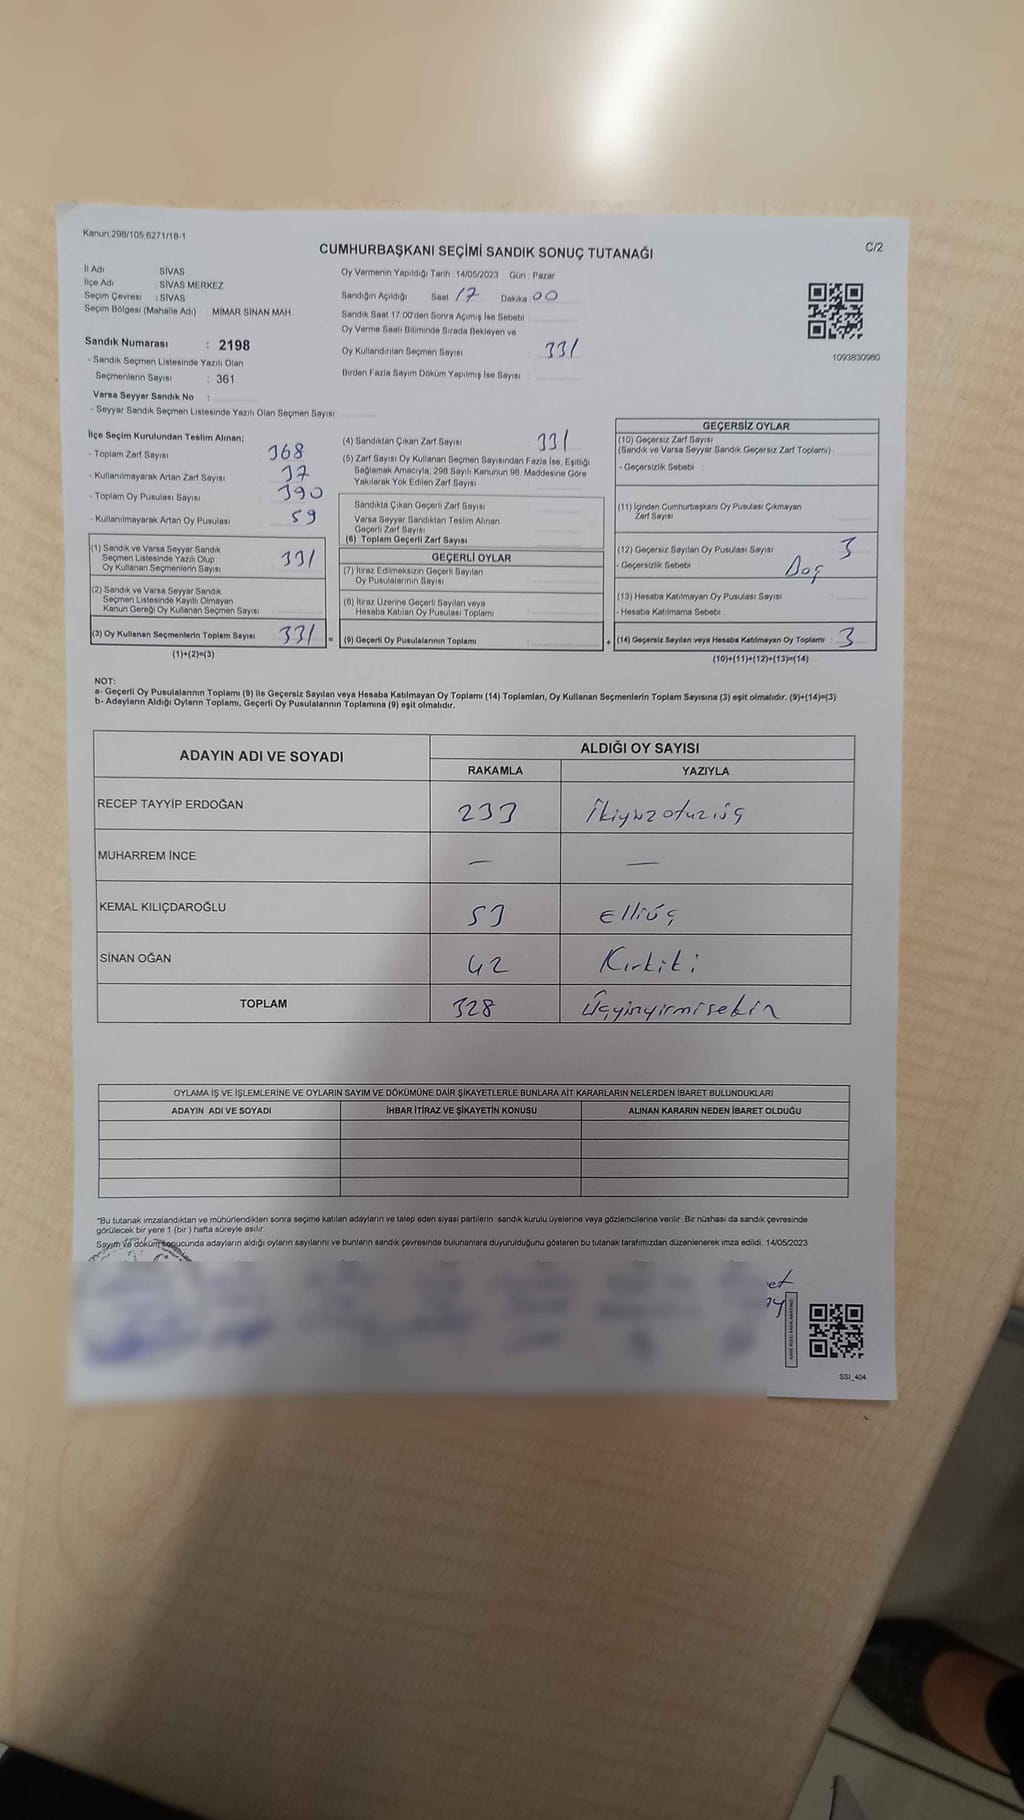 Kanun:298/105,6271/18-1
C/2
CUMHURBAŞKANI SEÇİMİ SANDIK SONUÇ TUTANAĞI
İl Adı : SİVAS
İlçe Adı : SİVAS MERKEZ
Seçim Çevresi : SİVAS
Seçim Bölgesi (Mahalle Adı) : MİMAR SİNAN MAH
Sandık Numarası : 2198
- Sandık Seçmen Listesinde Yazılı Olan
Seçmenlerin Sayısı : 361
Varsa Seyyar Sandık No :
- Seyyar Sandık Seçmen Listesinde Yazılı Olan Seçmen Sayısı :
Oy Vermenin Yapıldığı Tarih : 14/05/2023 Gün : Pazar
Sandığın Açıldığı Saat 17 Dakika 00
Sandık Saat 17:00'den Sonra Açımış İse Sebebi
Oy Verme Saati Bitiminde Sırada Bekleyen ve
Oy Kullandırılan Seçmen Sayısı 331
Birden Fazla Sayım Döküm Yapılmış İse Sayısı
1093830980
İlçe Seçim Kurulundan Teslim Alınan;
- Toplam Zarf Sayısı : 368
- Kullanılmayarak Artan Zarf Sayısı : 37
- Toplam Oy Pusulası Sayısı : 390
- Kullanılmayarak Artan Oy Pusulası : 59
(1) Sandık ve Varsa Seyyar Sandık
Seçmen Listesinde Yazılı Olup
Oy Kullanan Seçmenlerin Sayısı 331
(2) Sandık ve Varsa Seyyar Sandık
Seçmen Listesinde Kayıtlı Olmayan
Kanun Gereği Oy Kullanan Seçmen Sayısı
(3) Oy Kullanan Seçmenlerin Toplam Sayısı 331 =
(1)+(2)=(3)
(4) Sandıktan Çıkan Zarf Sayısı 331
(5) Zarf Sayısı Oy Kullanan Seçmen Sayısından Fazla İse, Eşitliği
Sağlamak Amacıyla; 298 Sayılı Kanunun 98. Maddesine Göre
Yakılarak Yok Edilen Zarf Sayısı
Sandıkta Çıkan Geçerli Zarf Sayısı
Varsa Seyyar Sandıktan Teslim Alınan
Geçerli Zarf Sayısı
(6) Toplam Geçerli Zarf Sayısı
GEÇERLİ OYLAR
(7) İtiraz Edilmeksizin Geçerli Sayılan
Oy Pusulalarının Sayısı
(8) İtiraz Üzerine Geçerli Sayılan veya
Hesaba Katılan Oy Pusulası Toplamı
(9) Geçerli Oy Pusulalarının Toplamı +
GEÇERSİZ OYLAR
(10) Geçersiz Zarf Sayısı
(Sandık ve Varsa Seyyar Sandık Geçersiz Zarf Toplamı)
- Geçersizlik Sebebi :
(11) İçinden Cumhurbaşkanı Oy Pusulası Çıkmayan
Zarf Sayısı
(12) Geçersiz Sayılan Oy Pusulası Sayısı 3
- Geçersizlik Sebebi Boş
(13) Hesaba Katılmayan Oy Pusulası Sayısı
- Hesaba Katılmama Sebebi :
(14) Geçersiz Sayılan veya Hesaba Katılmayan Oy Toplamı : 3
(10)+(11)+(12)+(13)=(14)
NOT:
a- Geçerli Oy Pusulalarının Toplamı (9) ile Geçersiz Sayılan veya Hesaba Katılmayan Oy Toplamı (14) Toplamları, Oy Kullanan Seçmenlerin Toplam Sayısına (3) eşit olmalıdır. (9)+(14)=(3)
b- Adayların Aldığı Oyların Toplamı, Geçerli Oy Pusulalarının Toplamına (9) eşit olmalıdır.
ADAYIN ADI VE SOYADI
ALDIĞI OY SAYISI
RAKAMLA YAZIYLA
RECEP TAYYİP ERDOĞAN 233 İkiyüzotuzüç
MUHARREM İNCE — —
KEMAL KILIÇDAROĞLU 53 Elliüç
SİNAN OĞAN 42 Kırkiki
TOPLAM 328 Üçyüzyirmisekiz
OYLAMA İŞ VE İŞLEMLERİNE VE OYLARIN SAYIM VE DÖKÜMÜNE DAİR ŞİKAYETLERLE BUNLARA AİT KARARLARIN NELERDEN İBARET BULUNDUKLARI
ADAYIN ADI VE SOYADI İHBAR İTİRAZ VE ŞİKAYETİN KONUSU ALINAN KARARIN NEDEN İBARET OLDUĞU
*Bu tutanak imzalandıktan ve mühürlendikten sonra seçime katılan adayların ve talep eden siyasi partilerin sandık kurulu üyelerine veya gözlemcilerine verilir. Bir nüshası da sandık çevresinde
görülecek bir yere 1 (bir ) hafta süreyle asılır.
Sayım ve döküm sonucunda adayların aldığı oyların sayılarını ve bunların sandık çevresinde bulunanlara duyurulduğunu gösteren bu tutanak tarafımızdan düzenlenerek imza edildi. 14/05/2023
SSI_404